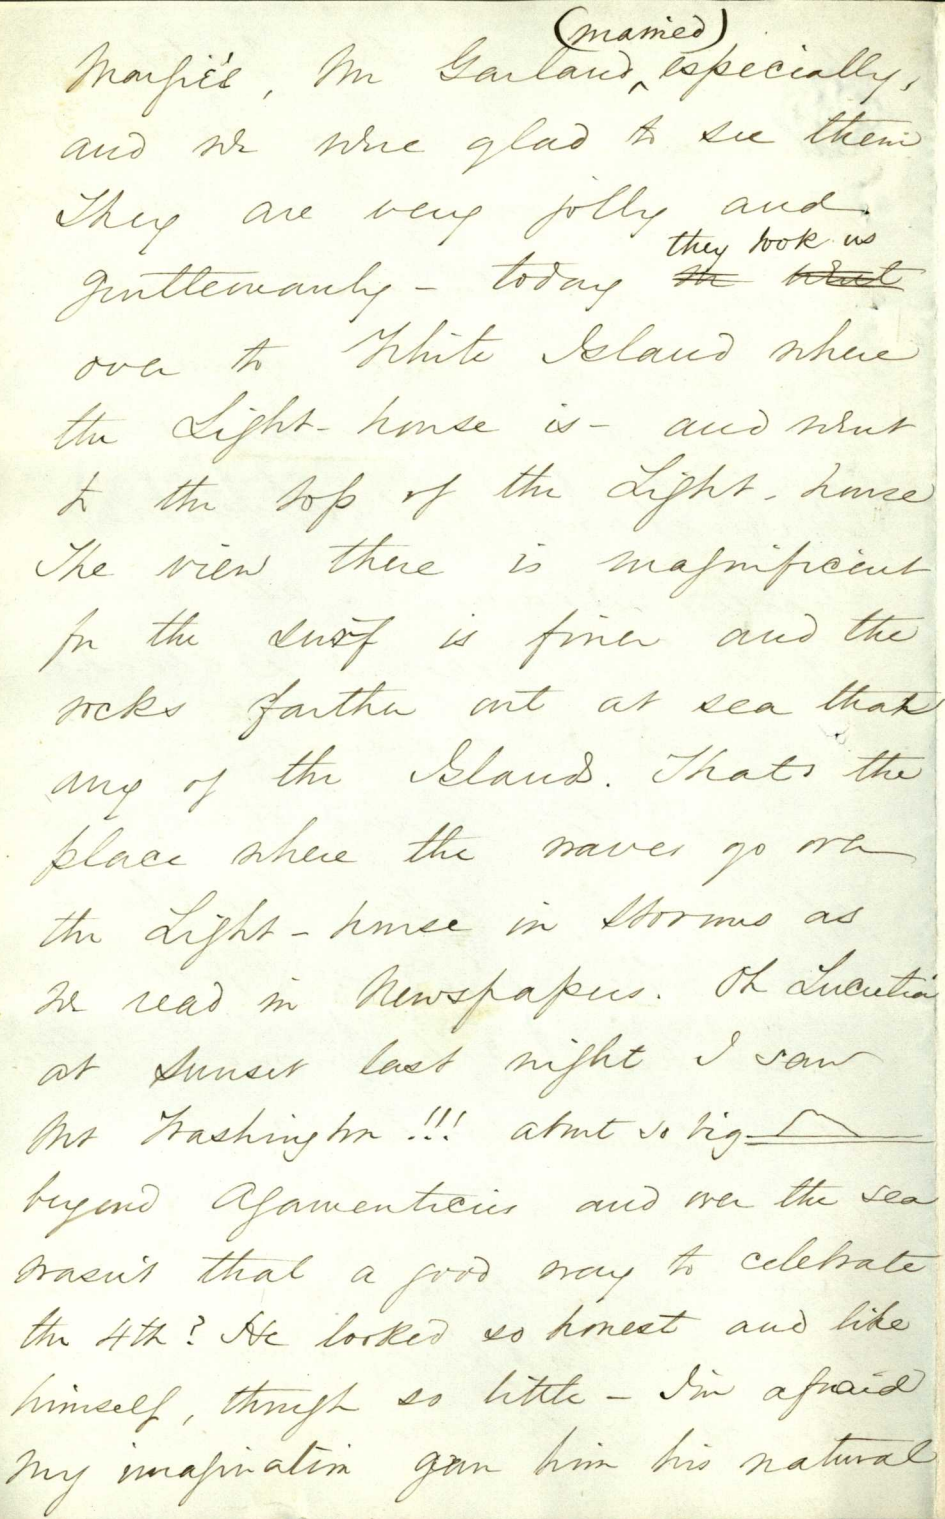 (married)
Margie's, Mr Garland, especially,
and we were glad to see them
They are very jolly and
they took us
gentlemanly - today we went
over to White Island where
the Light-house is - and went
to the top of the Light-house
The view there is magnificent
for the surf is finer and the
rocks farther out at sea than
any of the Islands. Thats the
place where the waves go over
the Light-house in storms as
we read in Newspapers. Oh Lucretia
at sunset last night I saw
Mt Washington !!! about so big
beyond Agamenticus and over the sea
wasn't that a good way to celebrate
the 4th? He looked so honest and like
himself, though so little - I'm afraid
my imagination gave him his natural